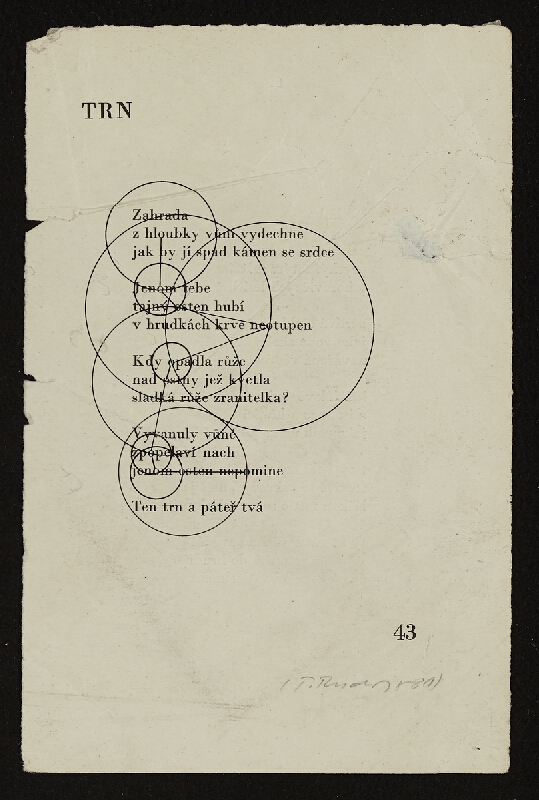 TRN
Zahrada
z hloubky vůni vydechne
jak by jí spad kámen se srdce
Jenom tebe
tajný osten hubí
v hrudkách krve neotupen
Kdy opadla růže
nad ostny jež kvetla
sladká růže zranitelka?
Vyvanuly vůně
zpopelaví nach
jenom osten nepomine
Ten trn a páteř tvá
43